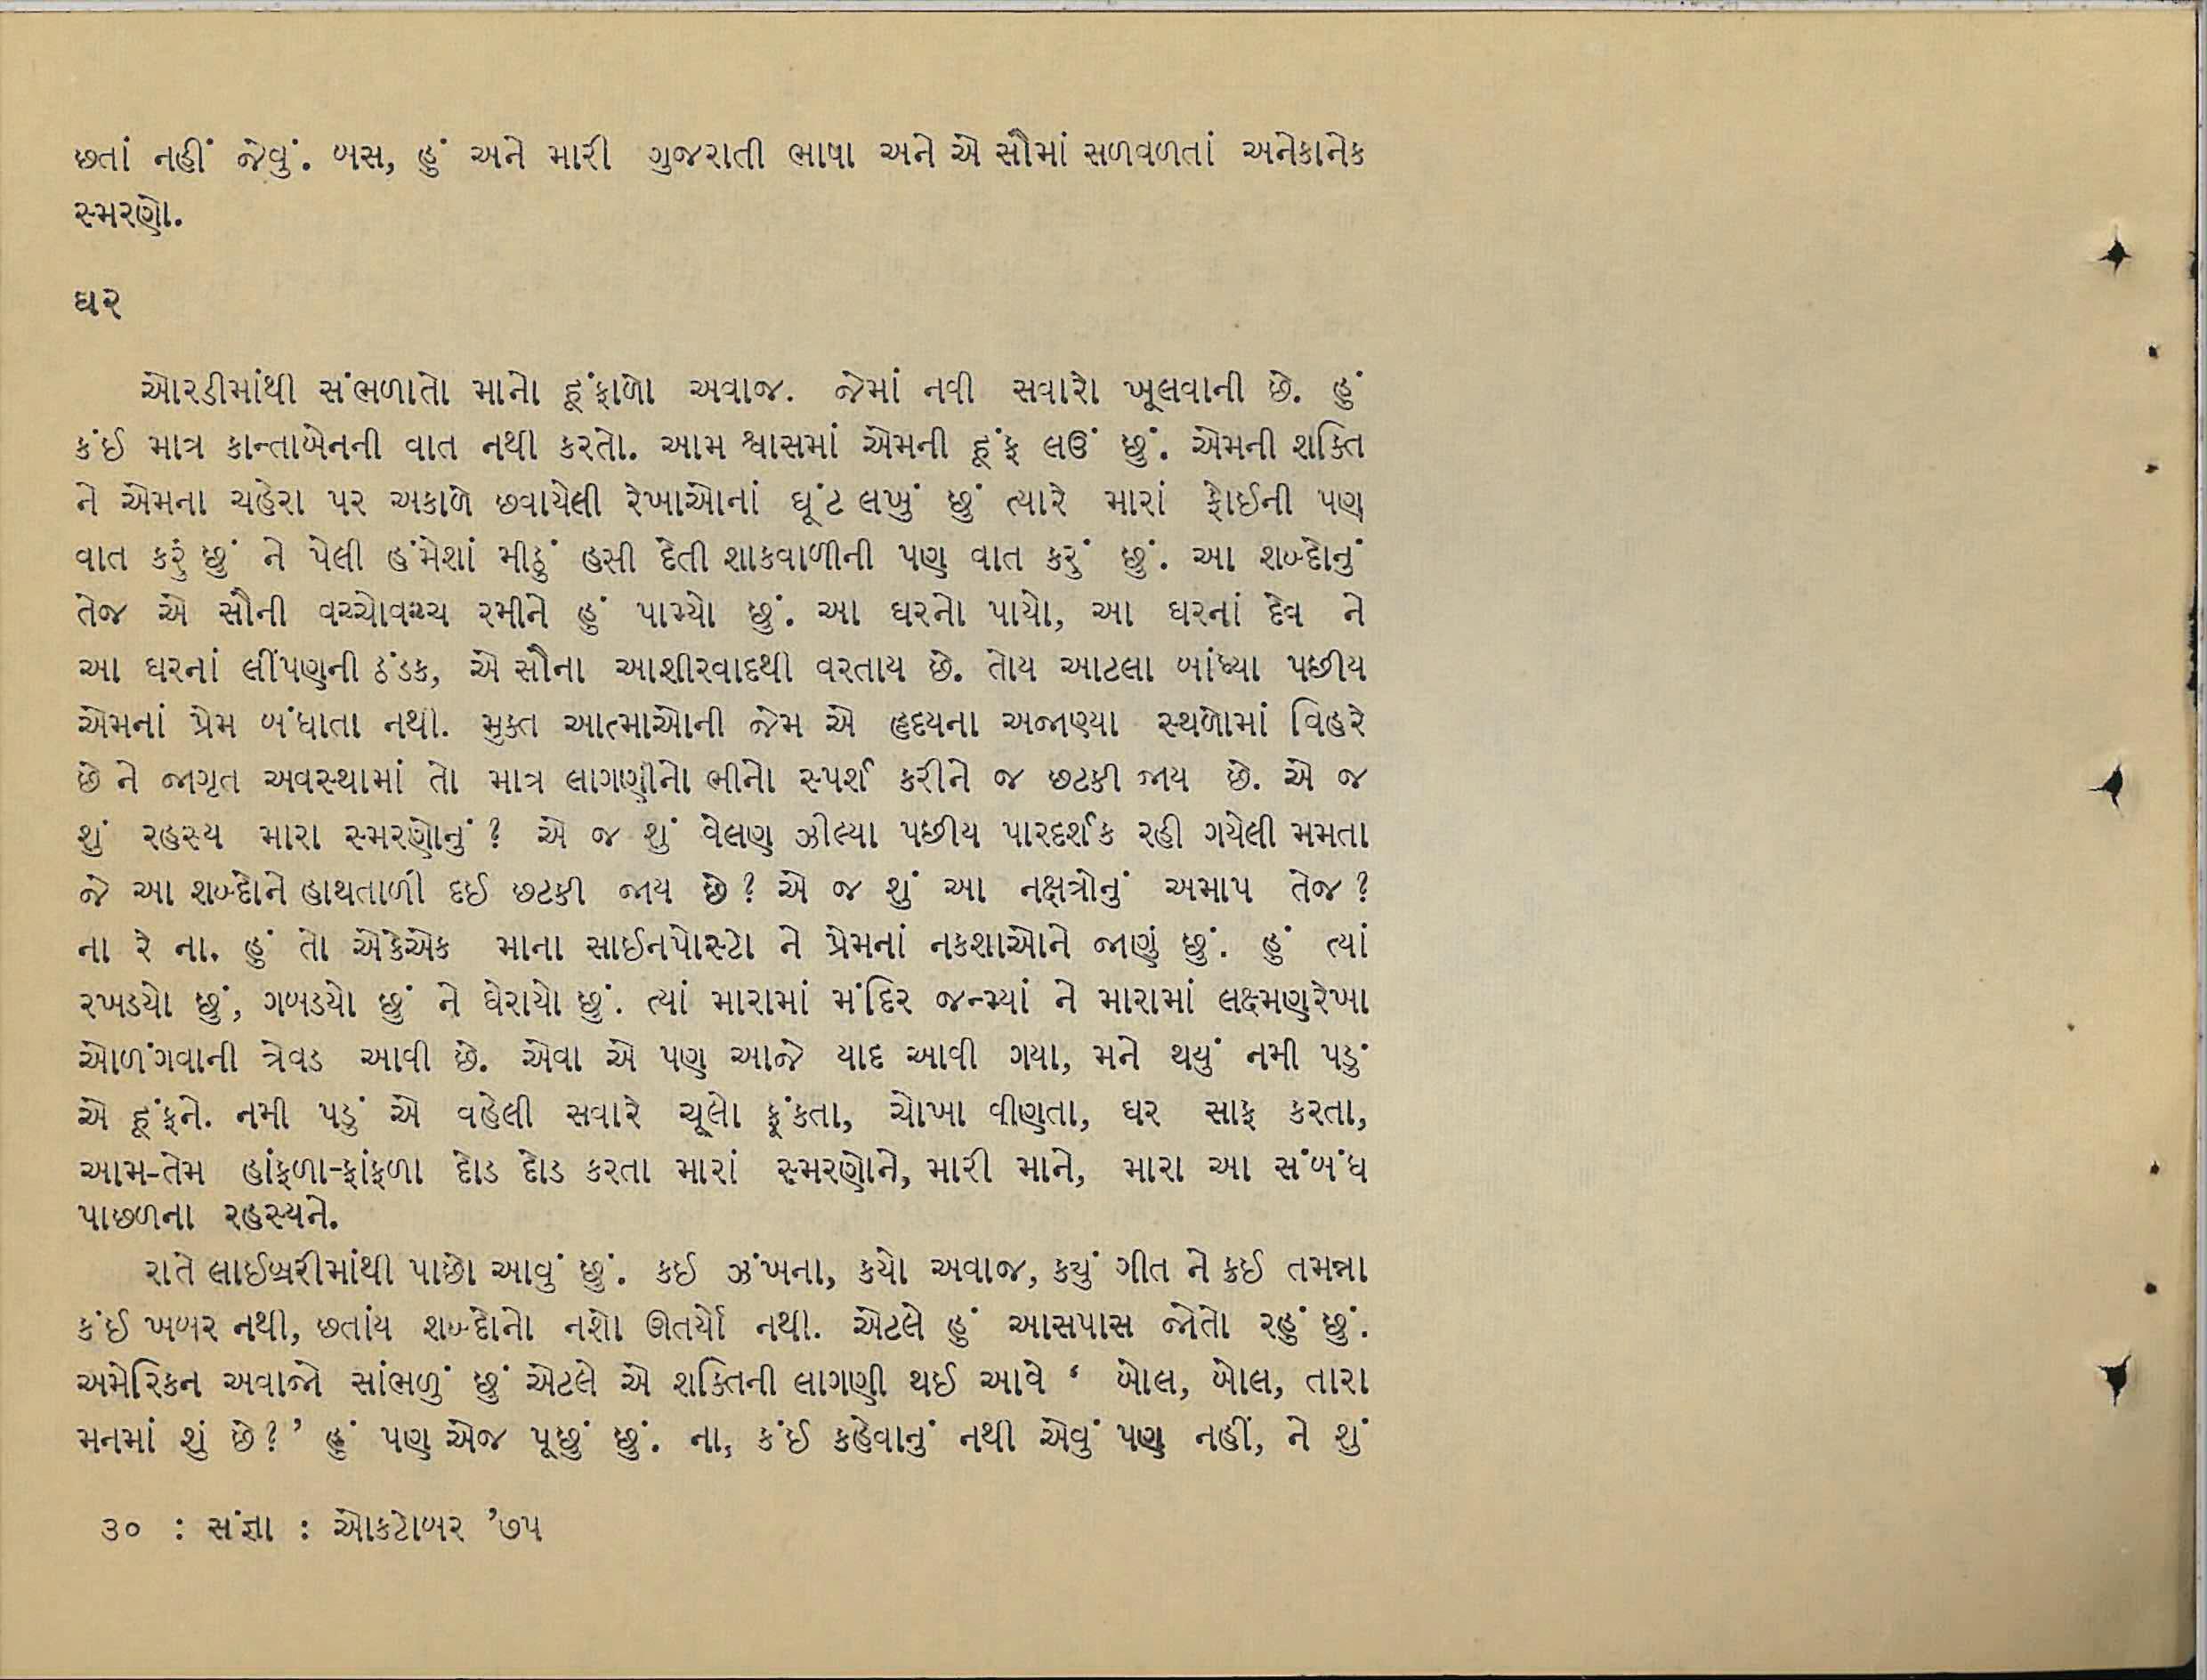 છતાં નહીં જેવું. બસ, હું અને મારી ગુજરાતી ભાષા અને એ સૌમાં સળવળતાં અનેકાનેક
સ્મરણો.
ઘર
ઓરડીમાંથી સંભળાતો માનો હૂંફાળો અવાજ. જેમાં નવી સવારો ખૂલવાની છે. હું
કંઈ માત્ર કાન્તાબેનની વાત નથી કરતો. આમ શ્વાસમાં એમની હૂંફ લઉં છું. એમની શક્તિ
ને એમના ચહેરા પર અકાળે છવાયેલી રેખાઓનાં ઘૂંટ લખું છું ત્યારે મારાં ફોઈની પણ
વાત કરું છું ને પેલી હંમેશાં મીઠું હસી દેતી શાકવાળીની પણ વાત કરું છું. આ શબ્દોનું
તેજ એ સૌની વચ્ચોવચ્ચ રમીને હું પામ્યો છું. આ ઘરનો પાયો, આ ઘરનાં દેવ ને
આ ઘરનાં લીંપણની ઠંડક, એ સૌના આશીરવાદથી વરતાય છે. તોય આટલા બાંધ્યા પછીય
એમનાં પ્રેમ બંધાતા નથી. મુક્ત આત્માઓની જેમ એ હૃદયના અજાણ્યા સ્થળોમાં વિહરે
છે ને જાગૃત અવસ્થામાં તો માત્ર લાગણીનો ભીનો સ્પર્શ કરીને જ છટકી જાય છે. એ જ
શું રહસ્ય મારા સ્મરણોનું? એ જ શું વેલણ ઝીલ્યા પછીય પારદર્શક રહી ગયેલી મમતા
જે આ શબ્દોને હાથતાળી દઈ છટકી જાય છે? એ જ શું આ નક્ષત્રોનું અમાપ તેજ?
ના રે ના. હું તો એકેએક માના સાઈનપોસ્ટો ને પ્રેમનાં નકશાઓને જાણું છું. હું ત્યાં
રખડયો છું, ગબડયો છું ને ઘેરાયો છું. ત્યાં મારામાં મંદિર જન્મ્યાં ને મારામાં લક્ષ્મણરેખા
ઓળંગવાની ત્રેવડ આવી છે. એવા એ પણ આજે યાદ આવી ગયા, મને થયું નમી પડું
એ હૂંફને. નમી પડું એ વહેલી સવારે ચૂલો ફૂંકતા, ચોખા વીણતા, ઘર સાફ કરતા,
આમ-તેમ હાંફળા-ફાંફળા દોડ દોડ કરતા મારાં સ્મરણોને, મારી માને, મારા આ સંબંધ
પાછળના રહસ્યને.
રાતે લાઈબ્રરીમાંથી પાછો આવું છું. કઈ ઝંખના, કયો અવાજ, કયું ગીત ને કઈ તમન્ના
કંઈ ખબર નથી, છતાંય શબ્દોનો નશો ઊતર્યો નથી. એટલે હું આસપાસ જોતો રહું છું.
અમેરિકન અવાજો સાંભળું છું એટલે એ શક્તિની લાગણી થઈ આવે ‘ બોલ, બોલ, તારા
મનમાં શું છે?’ હું પણ એજ પૂછું છું. ના, કંઈ કહેવાનું નથી એવું પણ નહીં, ને શું
૩૦ : સંજ્ઞા : ઓકટોબર ’૭૫